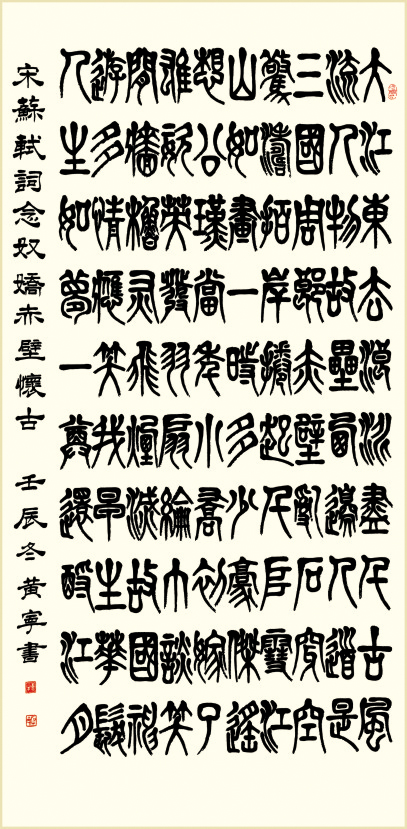 大江東去浪淘盡千古風
流人物故壘西邊人道是
三國周郎赤壁亂石穿空
驚濤拍岸捲起千堆雪江
山如畫一時多少豪傑遙
想公瑾當年小喬初嫁了
雄姿英發羽扇綸巾談笑
間檣櫓灰飛煙滅故國神
遊多情應笑我早生華髮
人生如夢一尊還酹江月
宋蘇軾詞念奴嬌赤壁懷古 壬辰冬黃寧書